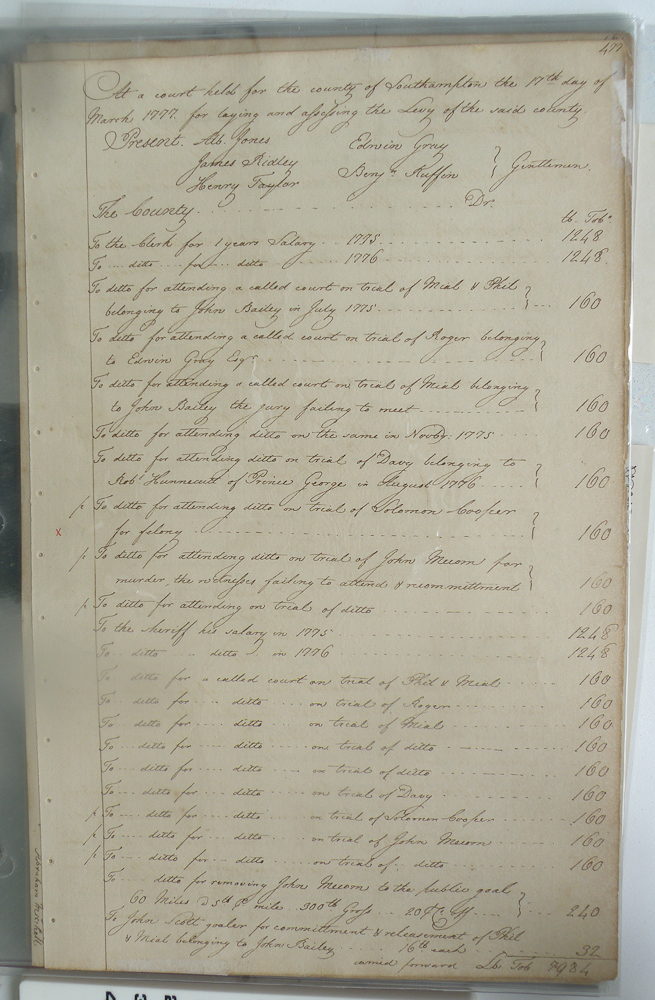 477
At a court held for the county of Southampton the 17th day of
March 1777. for laying and assessing the Levy of the said county
Present. Alb. Jones Edwin Gray
James Ridley Benjn. Ruffin } Gentlemen.
Henry Taylor
The County . . . . Dr.
lb. Tobo.
To the Clerk for 1 years Salary . . 1775 . . . . 1248
To ... ditto ... for ... ditto . . . . 1776 . . . . 1248
To ditto for attending a called court on trial of Mial & Phil
belonging to John Bailey in July 1775 . . . . } 160
To ditto for attending a called court on trial of Roger belonging
to Edwin Gray Esqr. . . . . } 160
To ditto for attending a called court on trial of Mial belonging
to John Bailey the jury failing to meet . . . . } 160
To ditto for attending ditto on the same in Novbr. 1775 . . . . 160
To ditto for attending ditto on trial of Davy belonging to
Robt. Hunnecutt of Prince George in August 1776 . . . . } 160
p To ditto for attending ditto on trial of Solomon Cooper
x for felony . . . . } 160
p To ditto for attending ditto on trial of John Mecom for
murder, the witnesses failing to attend & recommittment } 160
p To ditto for attending on trial of ditto . . . . 160
To the sheriff his salary in 1775 . . . . 1248
To ... ditto ... ditto . in 1776 . . . . 1248
To ditto for a called court on trial of Phil & Mial . . . . 160
To ... ditto for ... ditto ... on trial of Roger . . . . 160
To ... ditto for ... ditto ... on trial of Mial . . . . 160
To ... ditto for ... ditto ... on trial of ditto . . . . 160
To ... ditto for ... ditto ... on trial of ditto . . . . 160
To ... ditto for ... ditto ... on trial of Davy . . . . 160
p To ... ditto for ... ditto ... on trial of Solomon Cooper . . . . 160
p To ... ditto for ... ditto ... on trial of John Mecom . . . . 160
p To ... ditto for ... ditto ... on trial of ditto . . . . 160
To ... ditto for removing John Mecom to the public goal
60 Miles @ 5 lb. p mile . 300 lb Gross . . . 20 . } 240
To John Scott goaler for commitment & releasement of Phil
& Mial belonging to John Bailey . . . . 16 lb each . . . . 32
carried forward Lb. Tob 7984